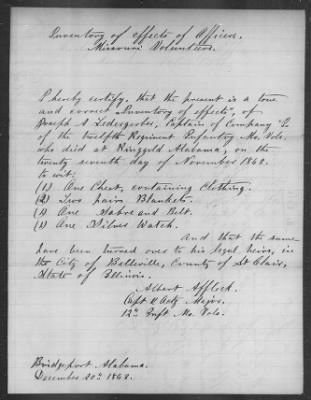 Inventory of effects of Officers.
Missouri Volunteers.
I hereby certify, that the present is a true
and correct "Inventory of effects", of
Joseph A Ledergerber, Captain of Company
of the twelfth Regiment Infantry Mo. Vols.
who died at Ringgold Alabama, on the
twenty seventh day of November 1863.
to wit:
(1) One Chest, containing Clothing.
(2) Two pairs Blankets.
(1) One Sabre and Belt.
(1) One Silver Watch.
And that the same
have been turned over to his legal heirs, in
the City of Belleville, County of St Clair,
State of Illinois.
Albert Affleck.
Capt & Actg Major.
12th Inft Mo. Vols.
Bridgeport Alabama.
December 20th 1863.